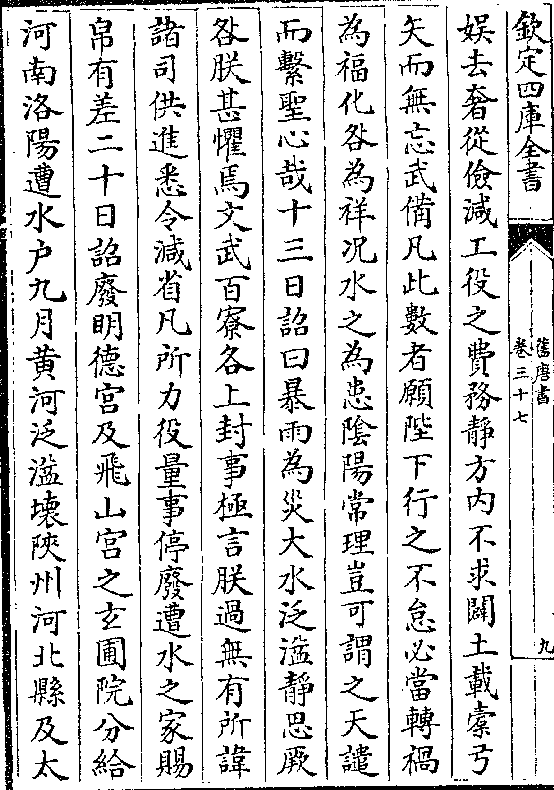 欽定四庫全書
舊唐書
卷三十七
九
娛去奢從儉減工役之費務靜方内不求闢土載櫜弓
矢而無忘武備凡此數者願陛下行之不怠必當轉禍
為福化咎為祥况水之為患隂陽常理豈可謂之天譴
而繫聖心哉十三日詔曰暴雨為災大水泛溢靜思厥
咎朕甚懼焉文武百寮各上封事極言朕過無有所諱
諸司供進悉令減省凡所力役量事停廢遭水之家賜
帛有差二十日詔廢明德宫及飛山宫之玄圃院分給
河南洛陽遭水户九月黄河泛溢壊陜州河北縣及太